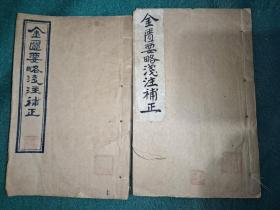 金匱要略淺注補正
金匱要略淺注補正